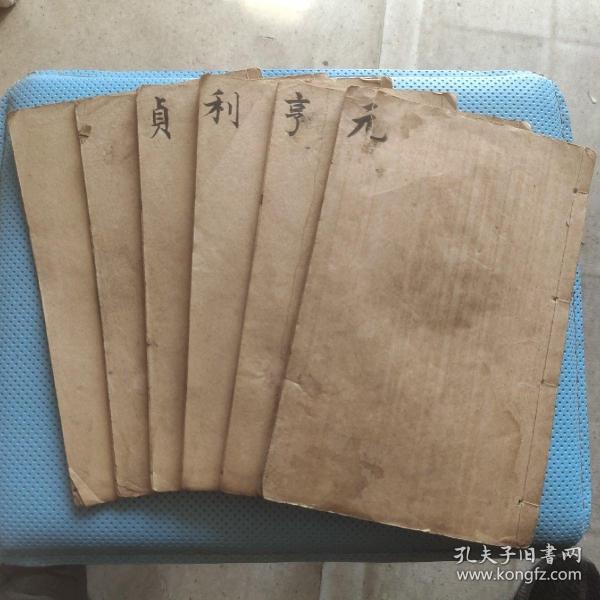 元
亨
利
貞
孔夫子旧书网
www.kongfz.com